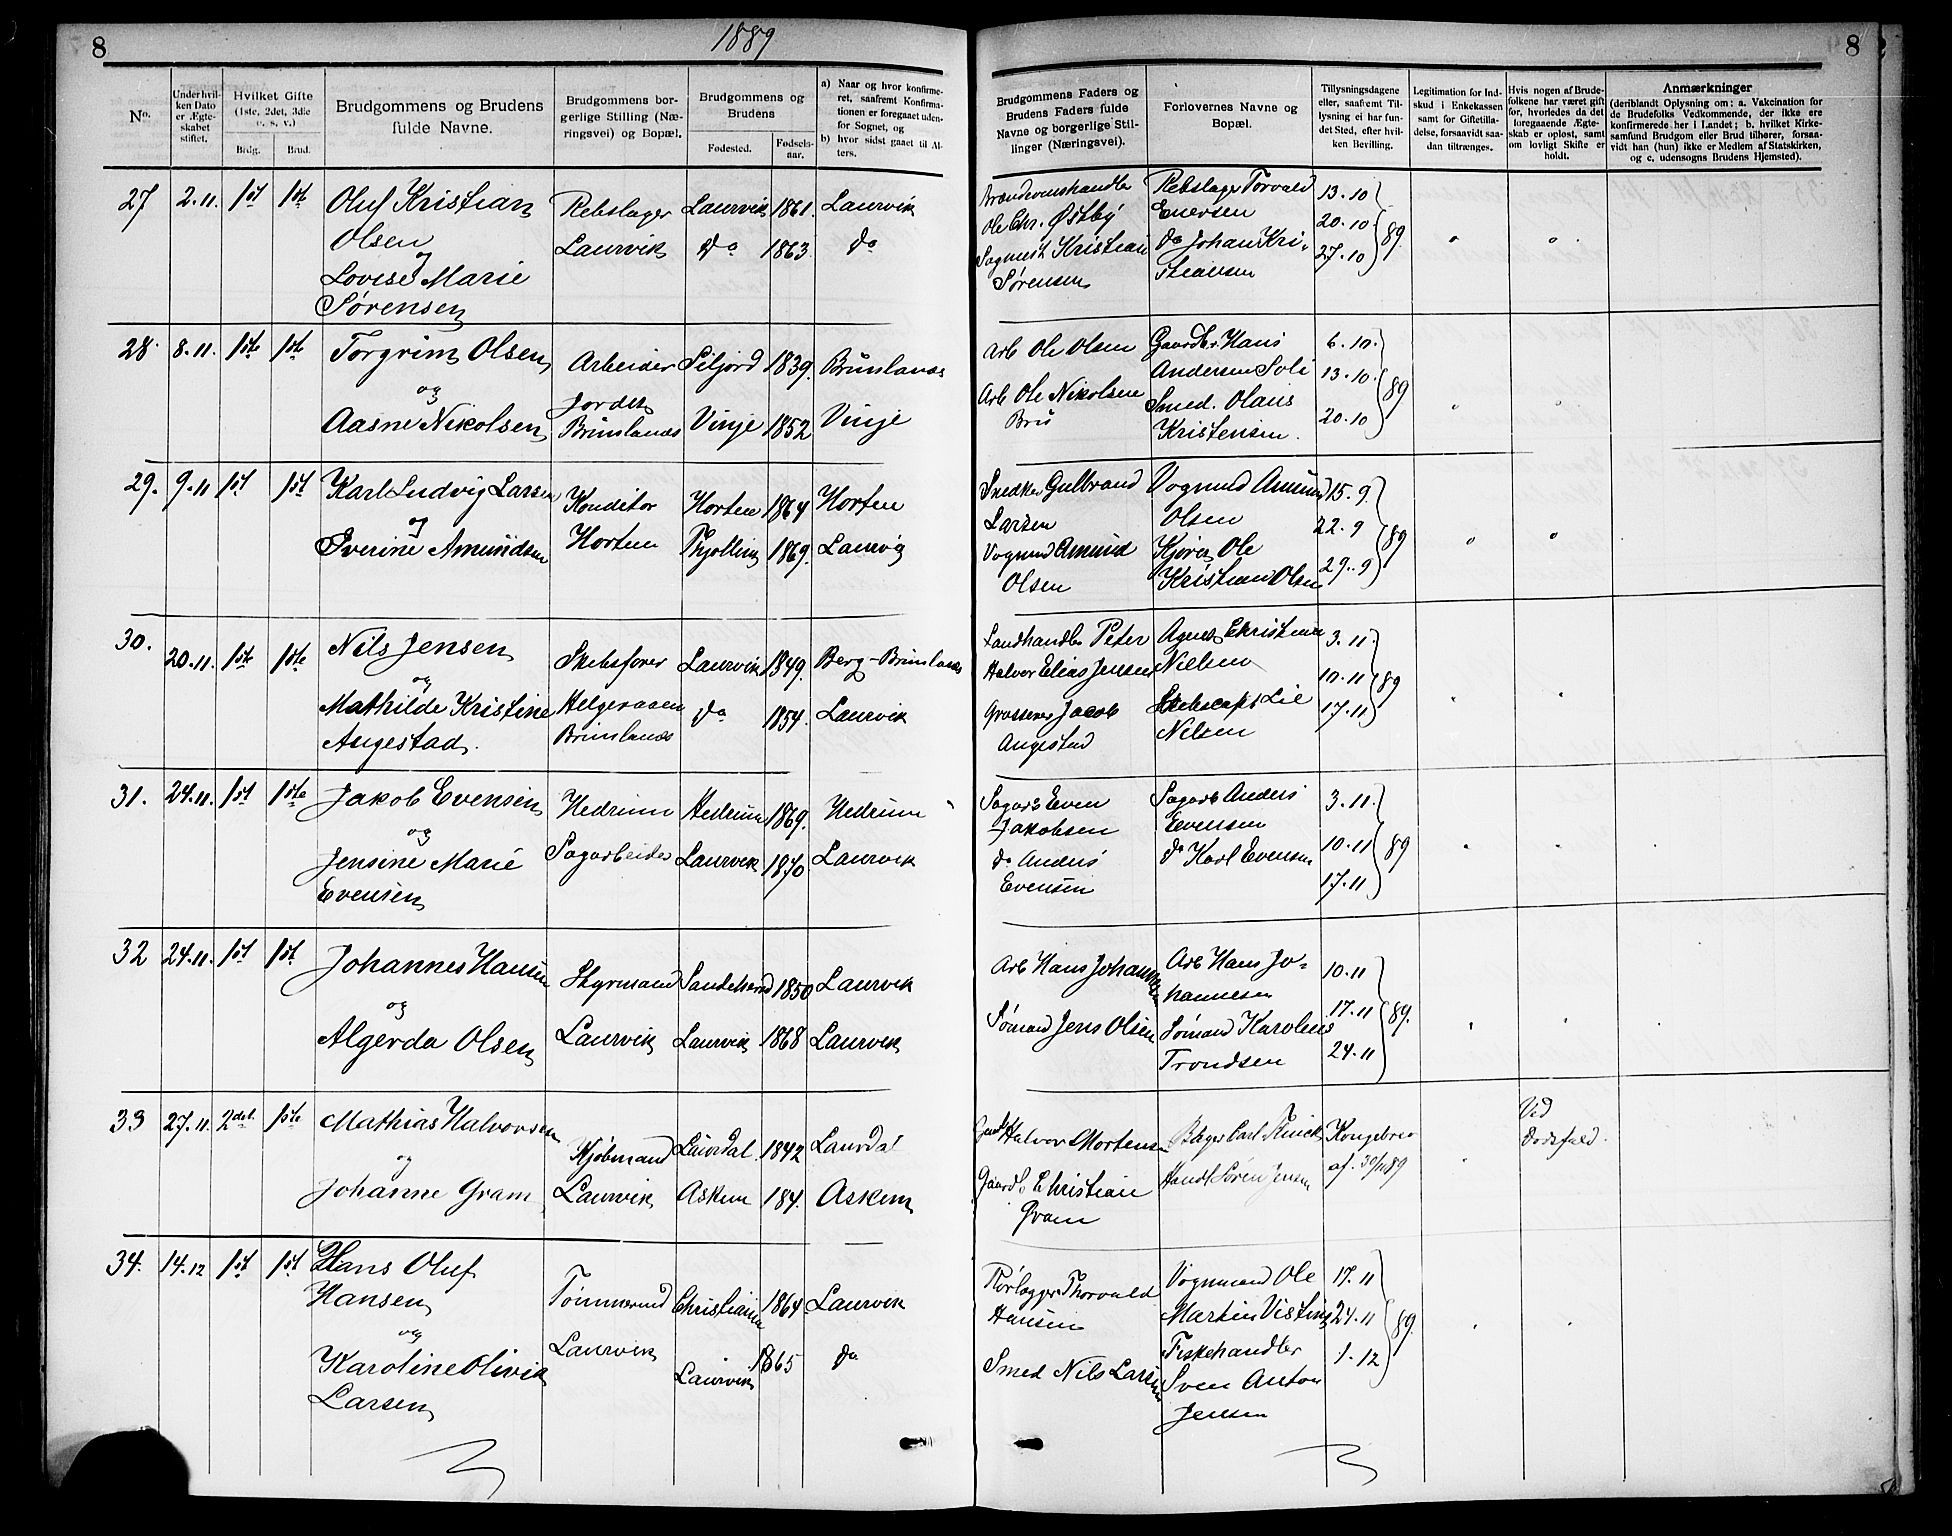 8
1889
8
No.
Under hvil-
ken Dato
er Ægte-
skabet
stiftet.
Hvilket Gifte
(1ste, 2det, 3die
o. s. v.)
Brdg.
Brud.
Brudgommens og Brudens
fulde Navne.
Brudgommens bor-
gerlige Stilling (Næ-
ringsvei) og Bopæl.
Brudgommens og
Brudens
Fødested.
Fødsels-
aar.
a) Naar og hvor konfirme-
ret, saafremt Konfirma-
tionen er foregaaet uden-
for Sognet, og
b) hvor sidst gaaet til Al-
ters.
Brudgommens Faders og
Brudens Faders fulde
Navne og borgerlige Stil-
linger (Næringsvei).
Forlovernes Navne og
Bopæl.
Tillysningsdagene
eller, saafremt Til-
lysning ei har fun-
det Sted, efter hvil-
ken Bevilling.
Legitimation for Ind-
skud i Enkekassen
samt for Giftetilla-
delse, forsaavidt saa-
dan tiltrænges.
Hvis nogen af Brude-
folkene har været gift
før, hvorledes da det
foregaaende Ægte-
skab er opløst, samt
om lovligt Skifte er
holdt.
Anmærkninger
(deriblandt Oplysning om: a. Vakcination for
de Brudefolks Vedkommende, der ikke ere
konfirmerede her i Landet; b. hvilket Kirke-
samfund Brudgom eller Brud tilhører, forsaa-
vidt han (hun) ikke er Medlem af Statskirken,
og c. udensogns Brudens Hjemsted).
27 2.11. 1st 1ste Oluf Kristian
Olsen
og
Lovise Marie
Sørensen
Rebslager
Laurvik
Laurvik 1861. Laurvik
do 1863. do
Brændevinshandler
Ole Chr. Østby
Sagmest. Kristian
Sørensen
Rebslager Torvald
Enersen
do Johan Kri-
stiansen
13.10
20.10
27.10
89.
28. 8.11. 1ste 1ste Torgrim Olsen
og
Aasne Nikolsen
Arbeider
Jordet
Brunlanæs
Siljord 1839. Brunlanæs
Vinje 1852 Vinje
Arb Ole Olsen
Arb Ole Nikolsen
Bru
Gaardbr. Hans
Andersen Soli
Smed. Olaus
Kristensen.
6.10.
13.10.
20.10
89.
29. 9.11 1st 1st Karl Ludvig Larsen
og
Severine Amundsen
Konditor
Horten
Horten 1864 Horten
Thjølling 1869. Laurvig
Snedker Gulbrand
Larsen
Vognmd Amund
Olsen
Vognmd Amund
Olsen
Kjører Ole
Kristian Olsen
15.9.
22.9
29.9
89
30. 20.11. 1ste 1ste Nils Jensen
og
Mathilde Kristine
Angestad.
Skibsfører
Helgeraaen
Brunlanæs
Laurvik 1849. Berg-Brunlanæs
do 1854. Laurvik
Landhandler Peter
Halvor Elias Jensen
Grosserer Jacob
Angestad
Agent Christian
Nielsen
Skibscapt Lie
Nilsen
3.11.
10.11
17.11
89
31. 24.11. 1st 1ste Jakob Evensen
og
Jensine Marie
Evensen
Hedrum
Sagarbeider
Hedrum 1869. Hedrum
Laurvik 1870. Laurvik
Sagarb Even
Jakobsen
do Anders
Evensen
Sagarb Anders
Evensen
do Karl Evensen
3.11.
10.11
17.11
89
32 24.11. 1st 1st. Johannes Hansen
og
Algerda Olsen
Styrmand
Laurvik
Sandeherred 1850 Laurvik
Laurvik 1868 Laurvik
Arb Hans Johannesen
Sømand Jens Olsen
Arb Hans Jo-
hannesen
Sømand Karolius
Trondsen
10.11
17.11
24.11
89.
33 27.11. 2det 1ste Mathias Halvorsen
og
Johanne Gram
Kjøbmand
Laurvik
Laurdal. 1842 Laurdal
Askem 184. Askem
Gaardb Halvor Mortensen
Gaardb Christian
Gram
Bager Carl
Handl. Søren Jensen
Kongebrev
af. 30/11 89
Ved
Dødsfald.
34. 14.12 1st 1st Hans Oluf
Hansen
og
Karoline Olivia
Larsen
Tømmermd
Laurvik
Christiania 1864 Laurvik
Laurvik 1865 do
Rørlægger Thorvald
Hansen
Smed Nils Larsen
Vognmand Ole
Martin Visting
Fiskehandler
Sven Anton
Jensen
17.11
24.11
1.12
89.